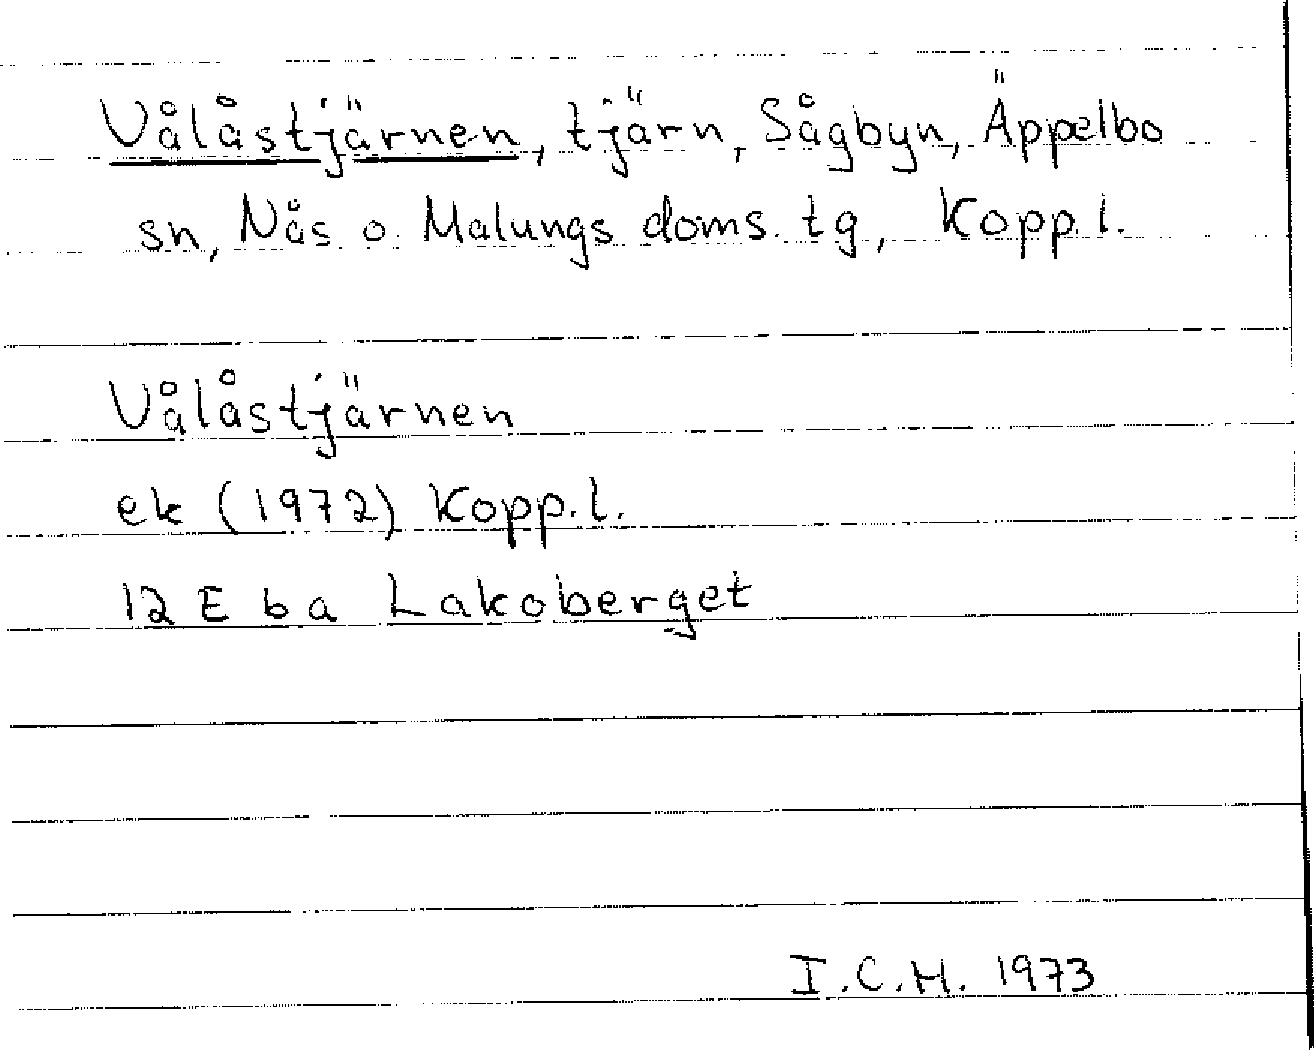 Vålåstjärnen, tjärn, Sågbyn, Äppelbo
sn, Nås o. Malungs doms. tg, Kopp.l.
Vålåstjärnen
ek (1972) Kopp.l.
12 E b a Lakoberget
I.C.H. 1973